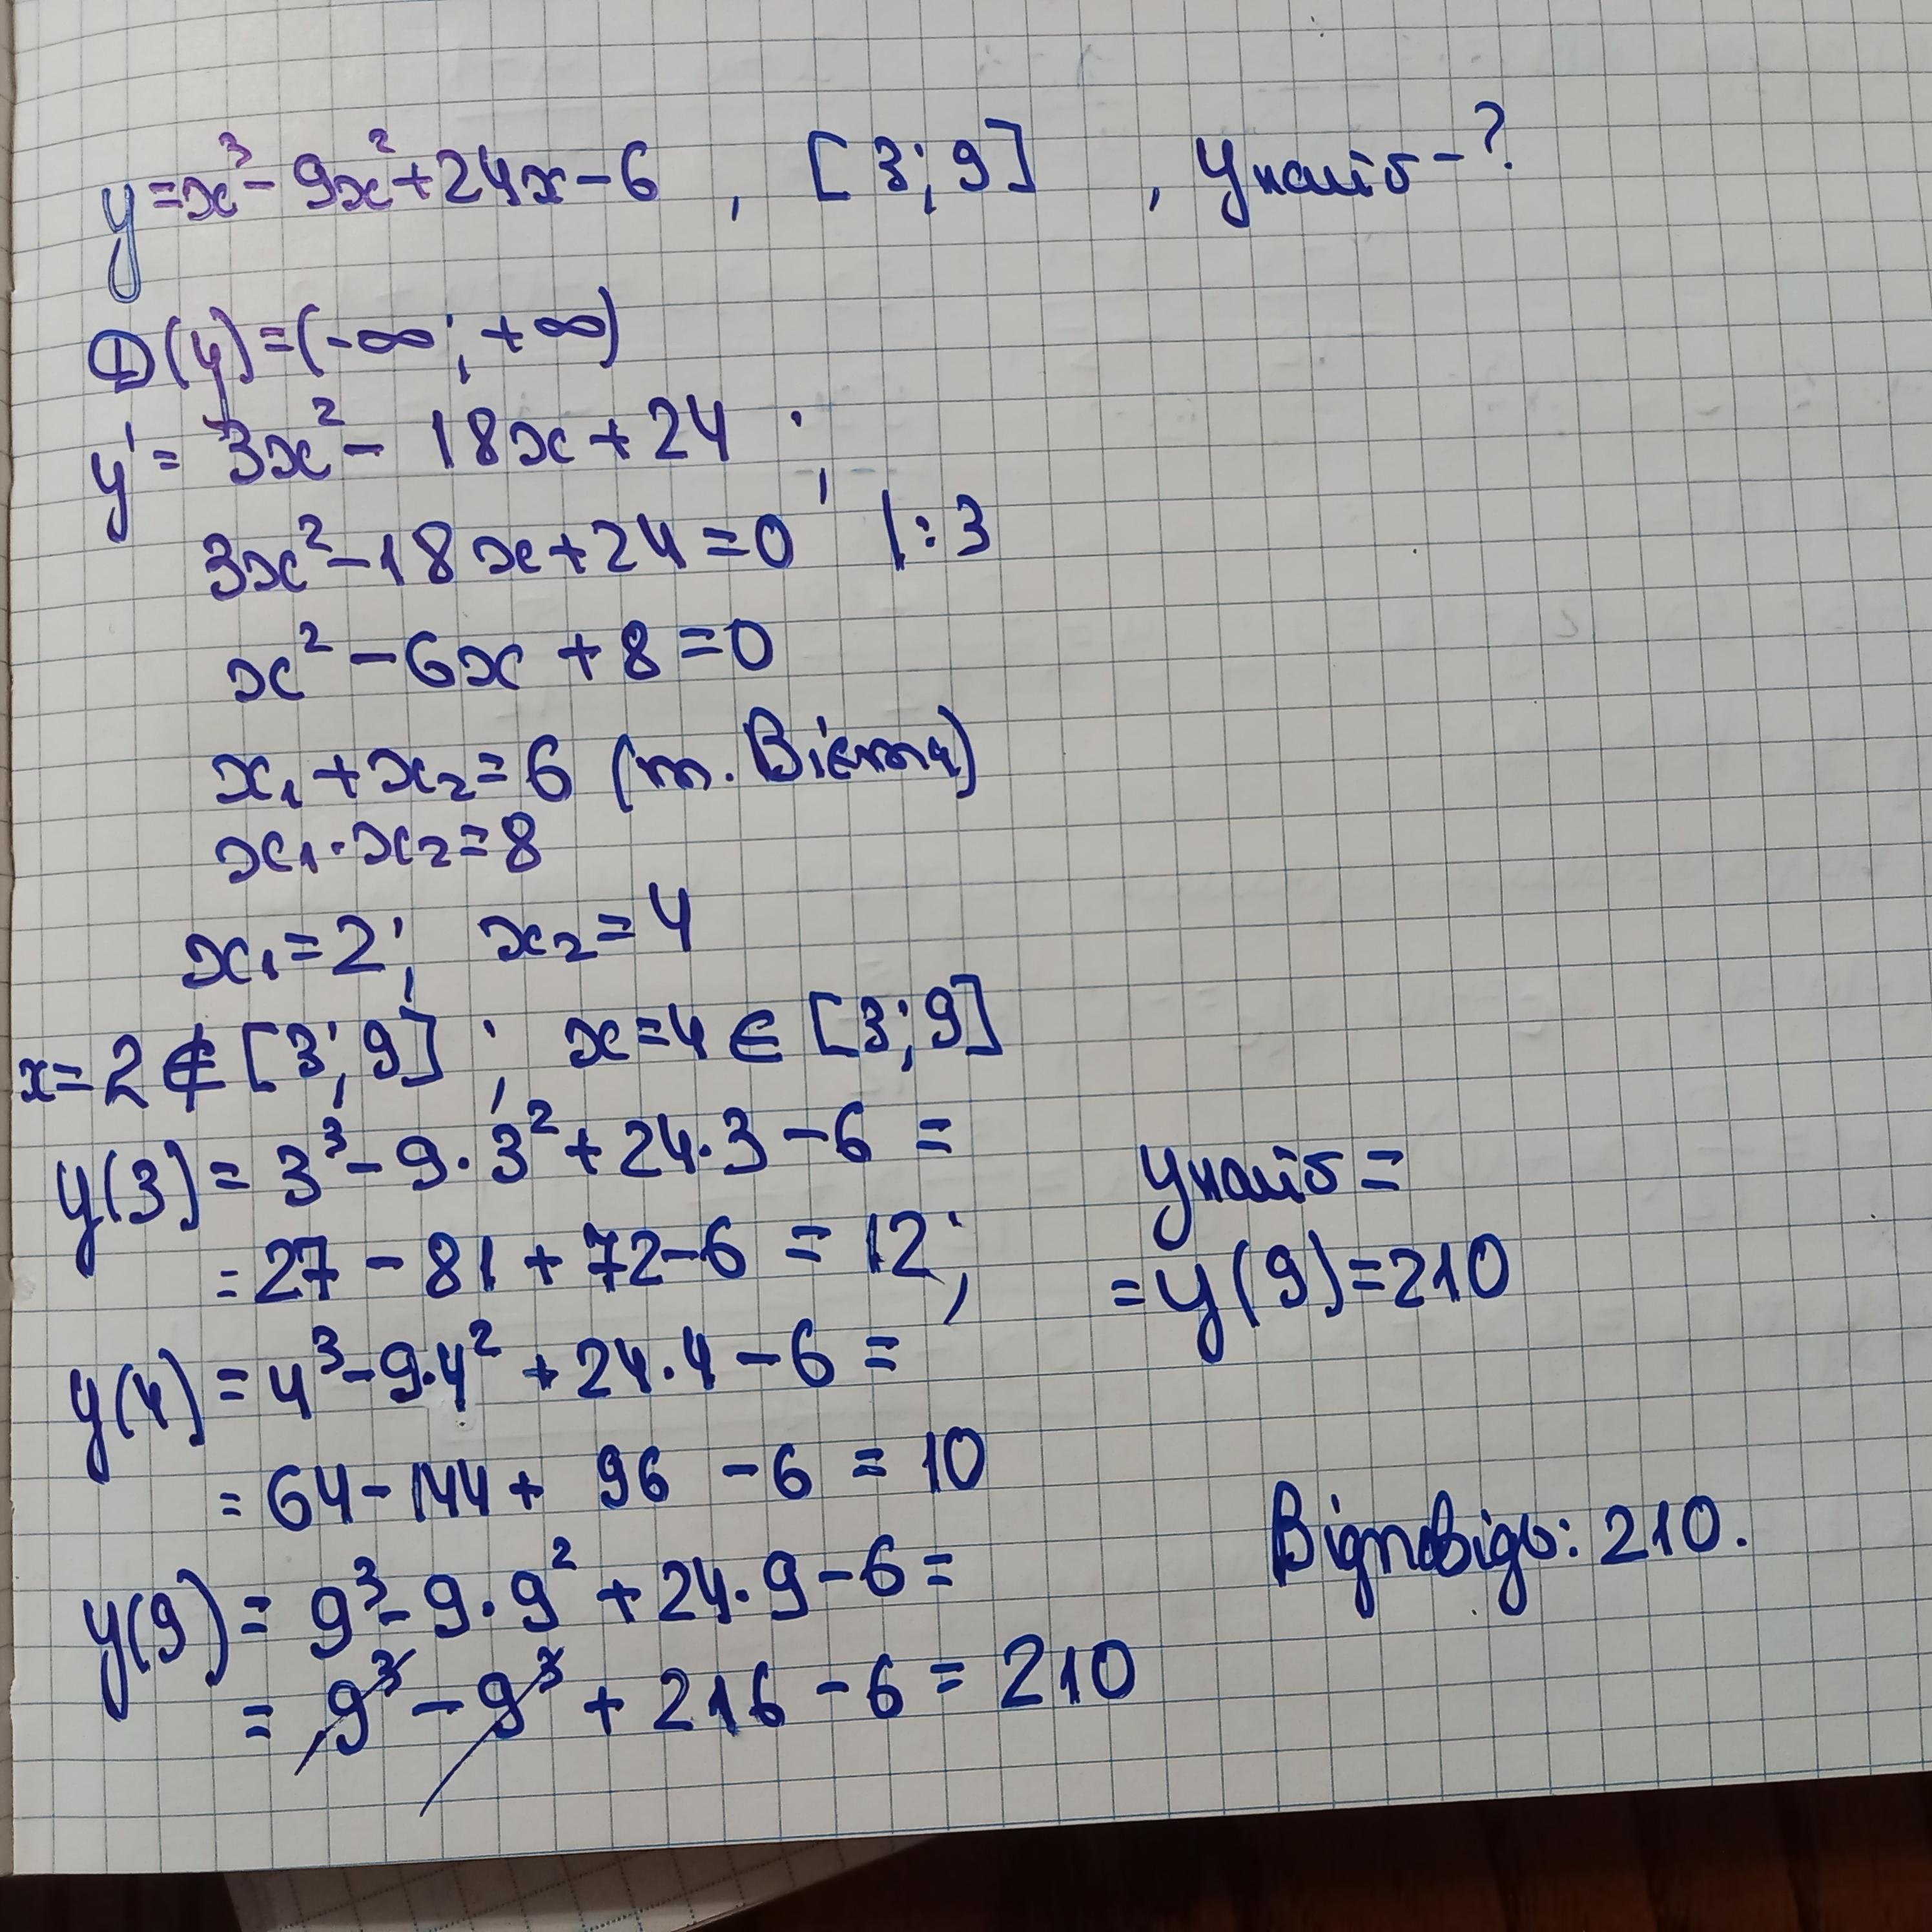 y=x³-9x²+24x-6 , [3;9] , yнайб-?
D(y)=(-∞;+∞)
y'=3x²-18x+24 ;
3x²-18x+24=0 |:3
x²-6x+8=0
x₁+x₂=6 (т. Вієта)
x₁·x₂=8
x₁=2; x₂=4
x=2∉[3;9] ; x=4∈[3;9]
y(3)=3³-9·3²+24·3-6=
=27-81+72-6=12;
y(4)=4³-9·4²+24·4-6=
=64-144+96-6=10
y(9)=9³-9·9²+24·9-6=
=9³-9³+216-6=210
yнайб=
=y(9)=210
Відповідь: 210.